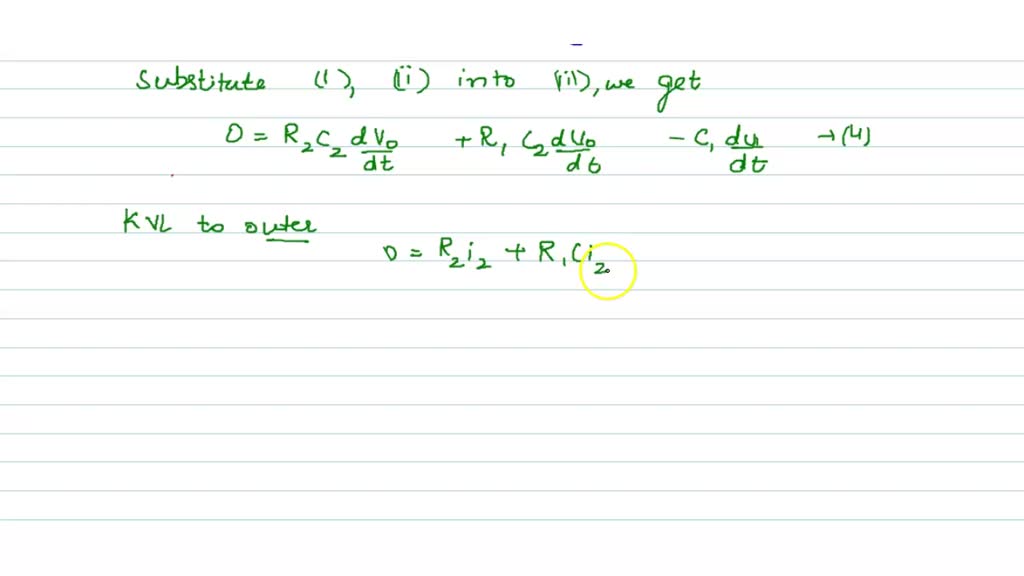 Substitute (i), (ii) into (iii), we get
0 = R₂C₂ dV₀/dt + R₁ C₂ dV₀/dt - C₁ du/dt → (4)
KVL to outer
0 = R₂i₂ + R₁Ci₂